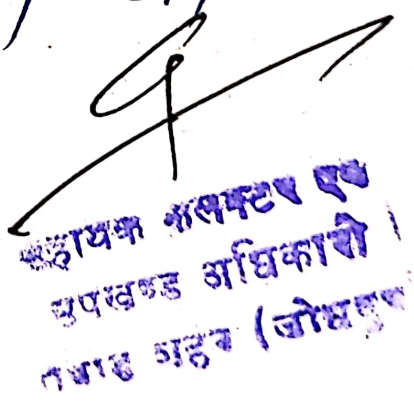 सहायक कलक्टर एवं
उपखण्ड अधिकारी
(जोधपुर